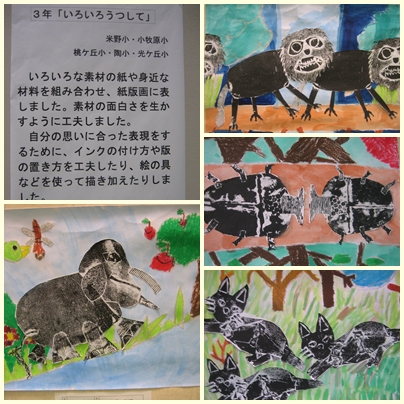 ３年「いろいろうつして」
米野小・小牧原小
桃ケ丘小・陶小・光ケ丘小
いろいろな素材の紙や身近な
材料を組み合わせ、紙版画に表
しました。素材の面白さを生か
すように工夫しました。
自分の思いに合った表現をす
るために、インクの付け方や版
の置き方を工夫したり、絵の具
などを使って描き加えたりしま
した。